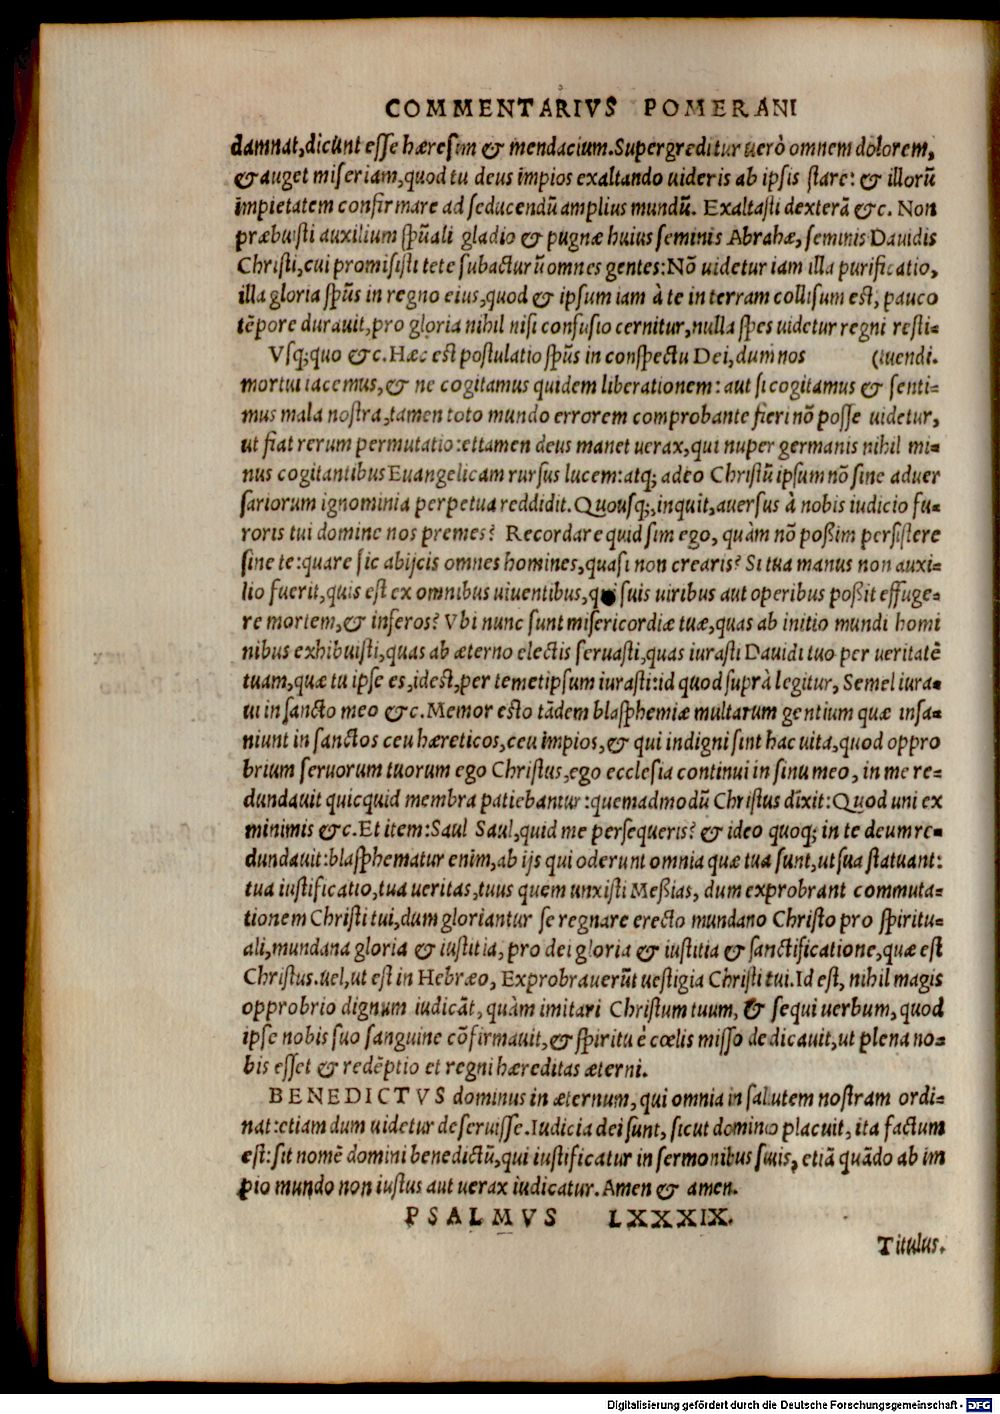 COMMENTARIVS POMERANI
damnat, dicūnt esse hæresim & mendacium. Supergreditur uerò omnem dolorem,
& auget miseriam, quod tu deus impios exaltando uideris ab ipsis stare: & illorū
impietatem confirmare ad seducendū amplius mundū. Exaltasti dexterā &c. Non
præbuisti auxilium spūali gladio & pugnæ huius seminis Abrahæ, seminis Dauidis
Christi, cui promisisti te te subacturū omnes gentes: Nō uidetur iam illa purificatio,
illa gloria spūs in regno eius, quod & ipsum iam à te in terram collisum est, pauco
tēpore durauit, pro gloria nihil nisi confusio cernitur, nulla spes uidetur regni resti-
Vsq; quo &c. Hæc est postulatio spūs in conspectu Dei, dum nos (tuendi.
mortui iacemus, & ne cogitamus quidem liberationem: aut si cogitamus & senti-
mus mala nostra, tamen toto mundo errorem comprobante fieri nō posse uidetur,
ut fiat rerum permutatio: ettamen deus manet uerax, qui nuper germanis nihil mi-
nus cogitantibus Euangelicam rursus lucem: atq; adeo Christū ipsum nō sine aduer
sariorum ignominia perpetua reddidit. Quousq;, inquit, auersus à nobis iudicio fu-
roris tui domine nos premes? Recordare quid sim ego, quàm nō poßim persistere
sine te: quare sic abijcis omnes homines, quasi non crearis? Si tua manus non auxi-
lio fuerit, quis est ex omnibus uiuentibus, qui suis uiribus aut operibus poßit effuge-
re mortem, & inferos? Vbi nunc sunt misericordiæ tuæ, quas ab initio mundi homi
nibus exhibuisti, quas ab æterno electis seruasti, quas iurasti Dauidi tuo per ueritatē
tuam, quæ tu ipse es, idest, per temetipsum iurasti: id quod suprà legitur, Semel iura-
ui in sancto meo &c. Memor esto tādem blasphemiæ multarum gentium quæ insa-
niunt in sanctos ceu hæreticos, ceu impios, & qui indigni sint hac uita, quod oppro
brium seruorum tuorum ego Christus, ego ecclesia continui in sinu meo, in me re-
dundauit quicquid membra patiebantur: quemadmodū Christus dixit: Quod uni ex
minimis &c. Et item: Saul Saul, quid me persequeris? & ideo quoq; in te deum re-
dundauit: blasphematur enim, ab ijs qui oderunt omnia quæ tua sunt, ut sua statuant:
tua iustificatio, tua ueritas, tuus quem unxisti Meßias, dum exprobrant commuta-
tionem Christi tui, dum gloriantur se regnare erecto mundano Christo pro spiritu-
ali, mundana gloria & iustitia, pro dei gloria & iustitia & sanctificatione, quæ est
Christus. uel, ut est in Hebræo, Exprobrauerūt uestigia Christi tui. Id est, nihil magis
opprobrio dignum iudicāt, quàm imitari Christum tuum, & sequi uerbum, quod
ipse nobis suo sanguine cōfirmauit, & spiritu è cœlis misso dedicauit, ut plena no-
bis esset & redēptio et regni hæreditas æterni.
BENEDICTVS dominus in æternum, qui omnia in salutem nostram ordi-
nat: etiam dum uidetur deseruisse. Iudicia dei sunt, sicut domino placuit, ita factum
est: sit nomē domini benedictū, qui iustificatur in sermonibus suis, etiā quādo ab im
pio mundo non iustus aut uerax iudicatur. Amen & amen.
PSALMVS LXXXIX.
Titulus.
Digitalisierung gefördert durch die Deutsche Forschungsgemeinschaft - DFG